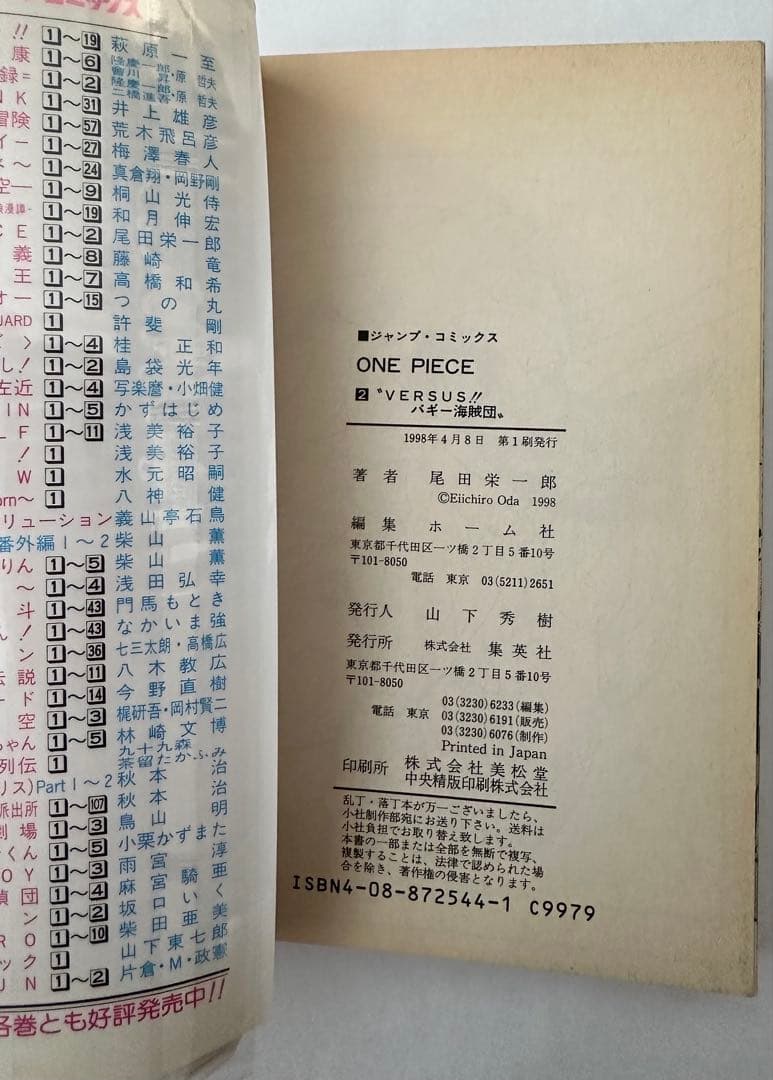 ミックス
!! 1～19 萩原一至
康 1～6 隆慶一郎・原 哲夫
録= 1～2 隆慶一郎・原 哲夫 二橋進吾
NK 1～31 井上雄彦
冒険 1～57 荒木飛呂彦
イー 1～27 梅澤春人
～ 1～24 真倉翔・岡野剛
空― 1～9 桐山光侍
浪漫譚- 1～19 和月伸宏
CE 1～2 尾田栄一郎
義 1～8 藤崎竜
王 1～7 高橋和希
オー 1～15 つの丸
UARD 1 許斐剛
〉 1～4 桂正和
し! 1～2 島袋光年
左近 1～4 写楽麿・小畑健
IN 1～5 かずはじめ
LF 1～11 浅美裕子
! 1 浅美裕子
W 1 水元昭嗣
orn～ 1 八神健
リューション 義山亭石鳥
番外編1～2 柴山薫
りん 1～5 柴山薫
～ 1～4 浅田弘幸
斗 1～43 門馬もとき
ん! 1～43 なかいま強
ン 1～36 七三太朗・高橋広
伝説 1～11 八木教広
ード 1～14 今野直樹
空 1～3 梶研吾・岡村賢二
ちゃん 1～5 林崎文博
列伝 1 九十九森 茶留たかふみ
リス)Part1～2 秋本治
派出所 1～107 秋本治
劇場 1～3 鳥山明
くん 1～5 小栗かずまた
OY 1～3 雨宮淳
偵団 1～4 麻宮騎亜
ン 1～2 坂口いく
RO 1～10 柴田亜美
ック 1 山下東七郎
UN 1～2 片倉・M・政憲
各巻とも好評発売中!!
■ジャンプ・コミックス
ONE PIECE
2 〝VERSUS!!
バギー海賊団〟
1998年4月8日 第1刷発行
著者 尾田栄一郎
©Eiichiro Oda 1998
編集 ホーム社
東京都千代田区一ツ橋2丁目5番10号
〒101-8050
電話 東京 03(5211)2651
発行人 山下秀樹
発行所 株式会社 集英社
東京都千代田区一ツ橋2丁目5番10号
〒101-8050
03(3230)6233(編集)
電話 東京 03(3230)6191(販売)
03(3230)6076(制作)
Printed in Japan
印刷所 株式会社美松堂
中央精版印刷株式会社
乱丁・落丁本が万一ございましたら、
小社制作部宛にお送り下さい。送料は
小社負担でお取り替え致します。
本書の一部または全部を無断で複写、
複製することは、法律で認められた場
合を除き、著作権の侵害となります。
ISBN4-08-872544-1 C9979